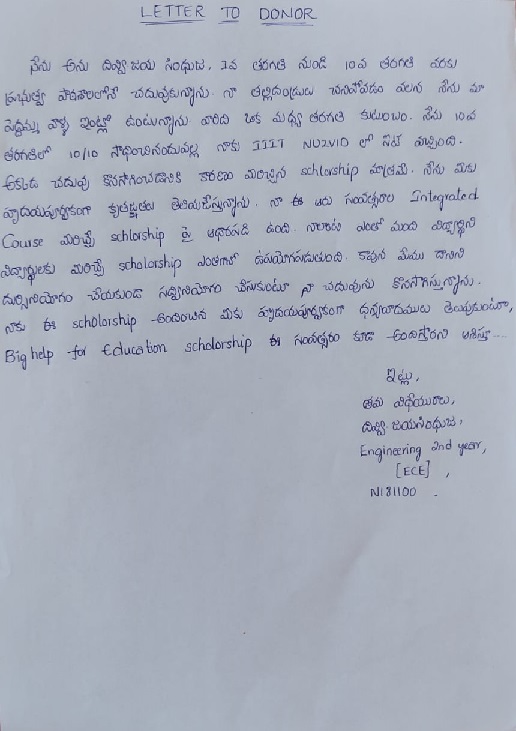 LETTER TO DONOR
నేను అను దివ్వి జయ సింధుజ. 1వ తరగతి నుండి 10వ తరగతి వరకు
ప్రభుత్వ పాఠశాలలోనే చదువుకున్నాను. నా తల్లిదండ్రులు చనిపోవడం వలన నేను మా
పెద్దమ్మ వాళ్ళ ఇంట్లో ఉంటున్నాను వారిది ఒక మధ్య తరగతి కుటుంబం. నేను 10వ
తరగతిలో 10/10 సాధించినందువల్ల నాకు IIIT NUZVID లో సీట్ వచ్చింది.
అక్కడ చదువు కొనసాగించడానికి కారణం మీరిచ్చిన schlorship మాత్రమే. నేను మీకు
హృదయపూర్వకంగా కృతజ్ఞతలు తెలియచేస్తున్నాను. నా ఈ ఆరు సంవత్సరాల Integrated
Course మీరిచ్చే schlorship పై ఆధారపడి ఉంది. నాలాంటి ఎంతో మంది విద్యార్థిని
విద్యార్థులకు మీరిచ్చే scholarship ఎంతగానో ఉపయోగపడుతుంది. కావున మేము దానిని
దుర్వినియోగం చేయకుండా సద్వినియోగం చేసుకుంటూ నా చదువును కొనసాగిస్తున్నాను.
నాకు ఈ scholorship అందించిన మీకు హృదయపూర్వకంగా ధన్యవాదములు తెలుపుకుంటూ,
Big help for Education scholorship ఈ సంవత్సరం కూడా అందిస్తారని ఆశిస్తూ....
ఇట్లు,
తమ విధేయురాలు,
దివ్వి జయసింధుజ,
Engineering 2nd year,
[ECE],
N181100.